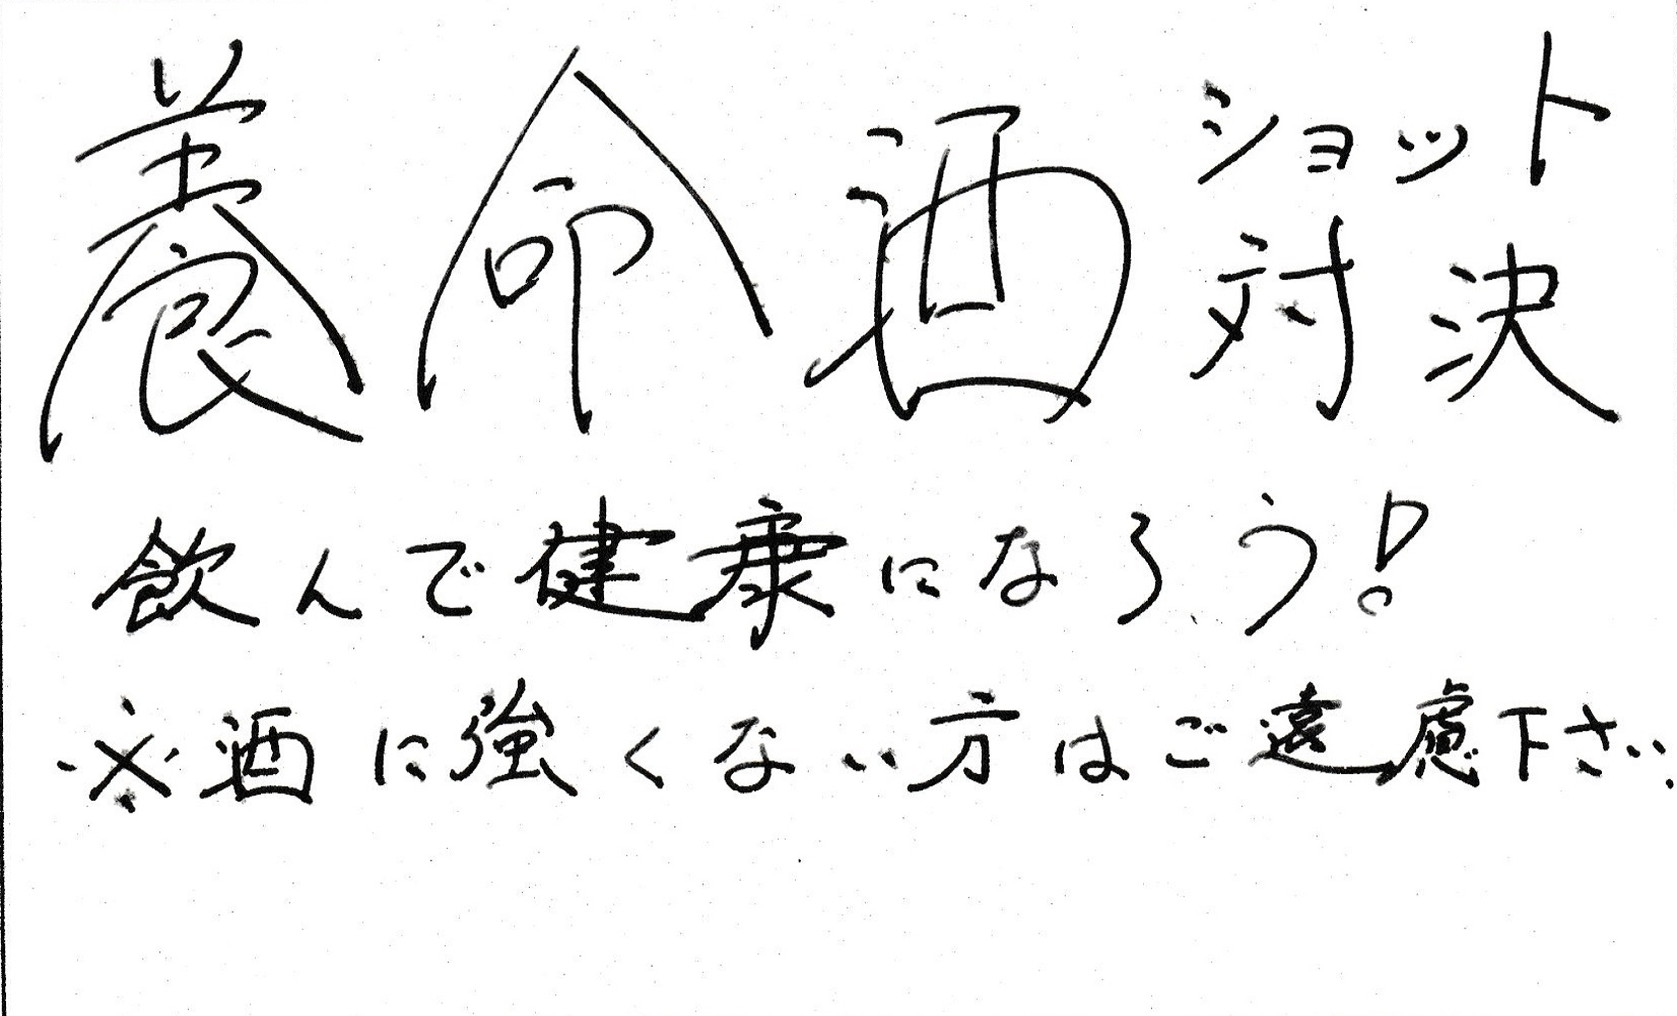 養命酒ショット対決
飲んで健康になろう!
※酒に強くない方はご遠慮下さい.